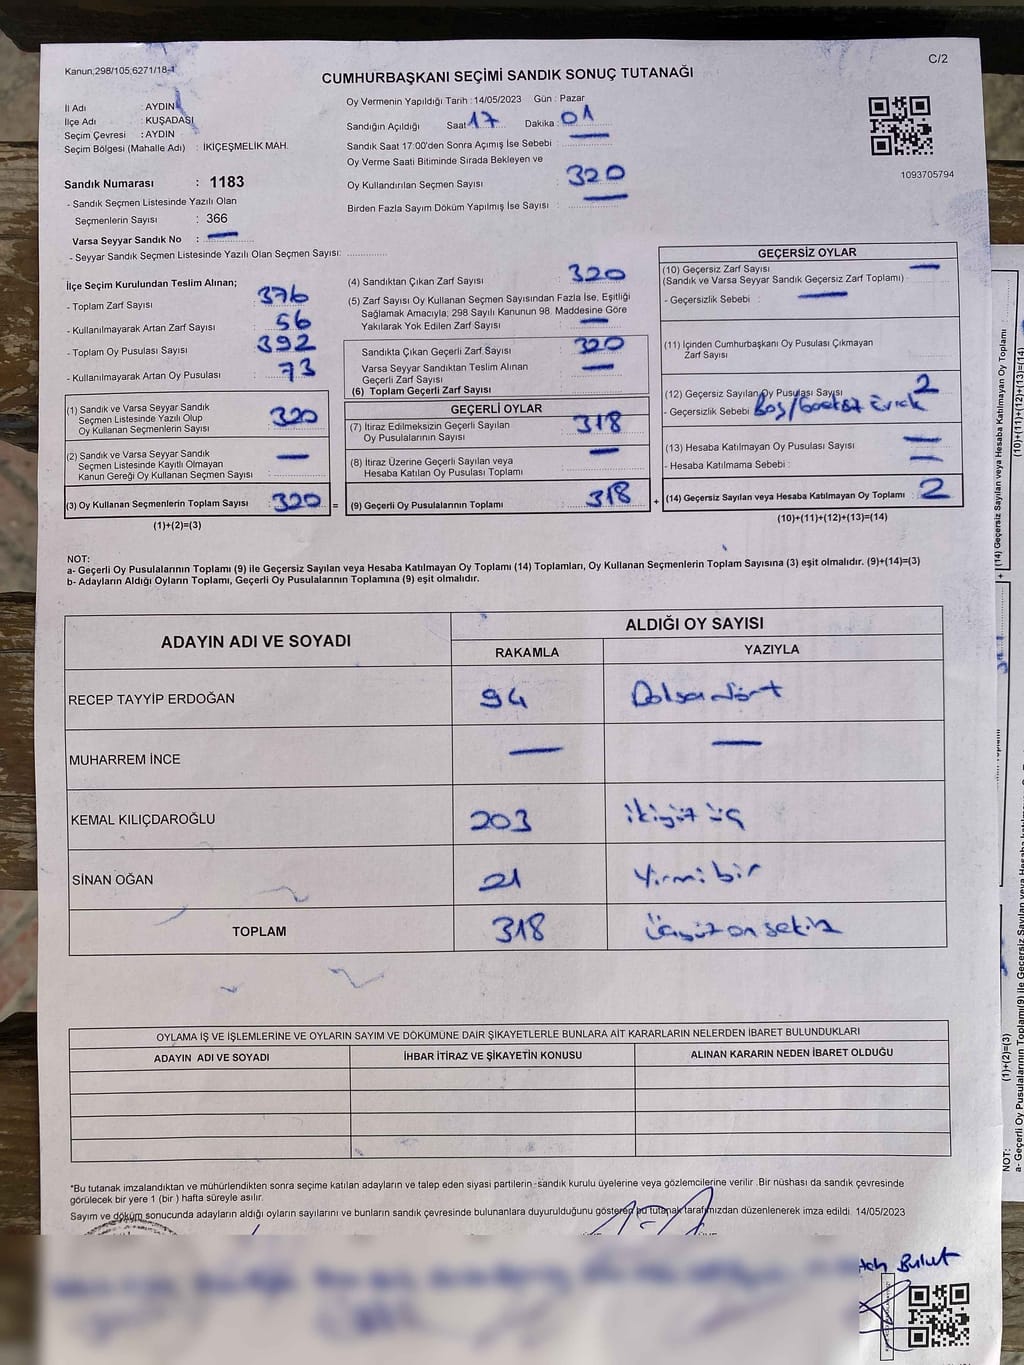 Kanun;298/105;6271/18-1
C/2
CUMHURBAŞKANI SEÇİMİ SANDIK SONUÇ TUTANAĞI
İl Adı : AYDIN
İlçe Adı : KUŞADASI
Seçim Çevresi : AYDIN
Seçim Bölgesi (Mahalle Adı) : İKİÇEŞMELİK MAH.
Oy Vermenin Yapıldığı Tarih : 14/05/2023 Gün : Pazar
Sandığın Açıldığı Saat : 17 Dakika : 01
Sandık Saat 17:00'den Sonra Açımış İse Sebebi : —
Oy Verme Saati Bitiminde Sırada Bekleyen ve
Oy Kullandırılan Seçmen Sayısı : 320
Birden Fazla Sayım Döküm Yapılmış İse Sayısı : —
1093705794
Sandık Numarası : 1183
- Sandık Seçmen Listesinde Yazılı Olan
Seçmenlerin Sayısı : 366
Varsa Seyyar Sandık No : —
- Seyyar Sandık Seçmen Listesinde Yazılı Olan Seçmen Sayısı:
İlçe Seçim Kurulundan Teslim Alınan;
- Toplam Zarf Sayısı : 376
- Kullanılmayarak Artan Zarf Sayısı : 56
- Toplam Oy Pusulası Sayısı : 392
- Kullanılmayarak Artan Oy Pusulası : 73
(1) Sandık ve Varsa Seyyar Sandık
Seçmen Listesinde Yazılı Olup
Oy Kullanan Seçmenlerin Sayısı : 320
(2) Sandık ve Varsa Seyyar Sandık
Seçmen Listesinde Kayıtlı Olmayan
Kanun Gereği Oy Kullanan Seçmen Sayısı : —
(3) Oy Kullanan Seçmenlerin Toplam Sayısı : 320 =
(1)+(2)=(3)
(4) Sandıktan Çıkan Zarf Sayısı : 320
(5) Zarf Sayısı Oy Kullanan Seçmen Sayısından Fazla İse, Eşitliği
Sağlamak Amacıyla; 298 Sayılı Kanunun 98. Maddesine Göre
Yakılarak Yok Edilen Zarf Sayısı : —
Sandıkta Çıkan Geçerli Zarf Sayısı : 320
Varsa Seyyar Sandıktan Teslim Alınan
Geçerli Zarf Sayısı : —
(6) Toplam Geçerli Zarf Sayısı
GEÇERLİ OYLAR
(7) İtiraz Edilmeksizin Geçerli Sayılan
Oy Pusulalarının Sayısı : 318
(8) İtiraz Üzerine Geçerli Sayılan veya
Hesaba Katılan Oy Pusulası Toplamı : —
(9) Geçerli Oy Pusulalarının Toplamı : 318 +
GEÇERSİZ OYLAR
(10) Geçersiz Zarf Sayısı : —
(Sandık ve Varsa Seyyar Sandık Geçersiz Zarf Toplamı)
- Geçersizlik Sebebi : —
(11) İçinden Cumhurbaşkanı Oy Pusulası Çıkmayan
Zarf Sayısı
(12) Geçersiz Sayılan Oy Pusulası Sayısı : 2
- Geçersizlik Sebebi : Boş/ Evrak
(13) Hesaba Katılmayan Oy Pusulası Sayısı : —
- Hesaba Katılmama Sebebi : —
(14) Geçersiz Sayılan veya Hesaba Katılmayan Oy Toplamı : 2
(10)+(11)+(12)+(13)=(14)
NOT:
a- Geçerli Oy Pusulalarının Toplamı (9) ile Geçersiz Sayılan veya Hesaba Katılmayan Oy Toplamı (14) Toplamları, Oy Kullanan Seçmenlerin Toplam Sayısına (3) eşit olmalıdır. (9)+(14)=(3)
b- Adayların Aldığı Oyların Toplamı, Geçerli Oy Pusulalarının Toplamına (9) eşit olmalıdır.
ADAYIN ADI VE SOYADI
ALDIĞI OY SAYISI
RAKAMLA YAZIYLA
RECEP TAYYİP ERDOĞAN 94 Doksandört
MUHARREM İNCE — —
KEMAL KILIÇDAROĞLU 203 ikiyüz üç
SİNAN OĞAN 21 Yirmibir
TOPLAM 318 Üçyüz on sekiz
OYLAMA İŞ VE İŞLEMLERİNE VE OYLARIN SAYIM VE DÖKÜMÜNE DAİR ŞİKAYETLERLE BUNLARA AİT KARARLARIN NELERDEN İBARET BULUNDUKLARI
ADAYIN ADI VE SOYADI İHBAR İTİRAZ VE ŞİKAYETİN KONUSU ALINAN KARARIN NEDEN İBARET OLDUĞU
*Bu tutanak imzalandıktan ve mühürlendikten sonra seçime katılan adayların ve talep eden siyasi partilerin -sandık kurulu üyelerine veya gözlemcilerine verilir .Bir nüshası da sandık çevresinde
görülecek bir yere 1 (bir ) hafta süreyle asılır.
Sayım ve döküm sonucunda adayların aldığı oyların sayılarını ve bunların sandık çevresinde bulunanlara duyurulduğunu gösteren bu tutanak tarafımızdan düzenlenerek imza edildi. 14/05/2023
Bulut
+ (14) Geçersiz Sayılan veya Hesaba Katılmayan Oy Toplamı
(10)+(11)+(12)+(13)=(14)
(1)+(2)=(3)
NOT: